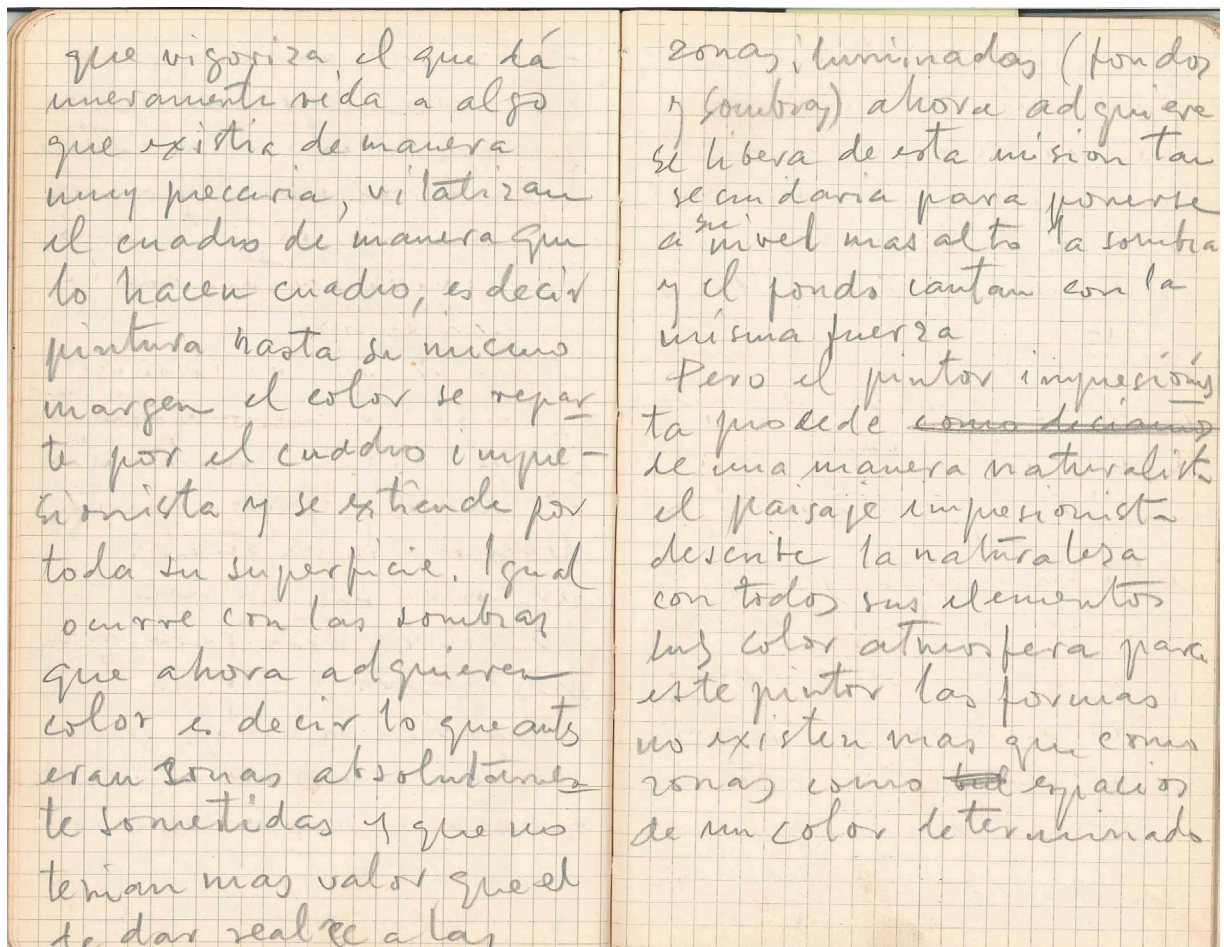 que vigoriza el que dá
nuevamente vida a algo
que existia de manera
muy precaria, vitalizan
el cuadro de manera que
lo hacen cuadro, es decir
pintura hasta su mismo
margen el color se repar
te por el cuadro impre-
sionista y se extiende por
toda su superficie. Igual
ocurre con las sombras
que ahora adquieren
color es decir lo que antes
eran zonas absolutamen
te sometidas y que no
tenian mas valor que el
de dar realce a las
zonas iluminadas (fondos
y sombras) ahora adquiere
se libera de esta mision tan
secundaria para ponerse
a su nivel mas alto la sombra
y el fondo cantan con la
misma fuerza
Pero el pintor impresionis
ta procede como deciamos
de una manera naturalista
el paisaje impresionista
describe la naturaleza
con todos sus elementos
luz color atmosfera para
este pintor las formas
no existen mas que como
zonas como espacios
de un color determinado